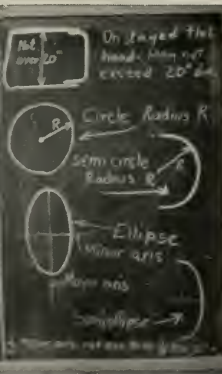 Not
over 20"
Unstayed flat
heads May not
exceed 20" dia
Circle Radius R
R
semicircle
Radius R
R
Ellipse
Minor axis
Major axis
Semiellipse